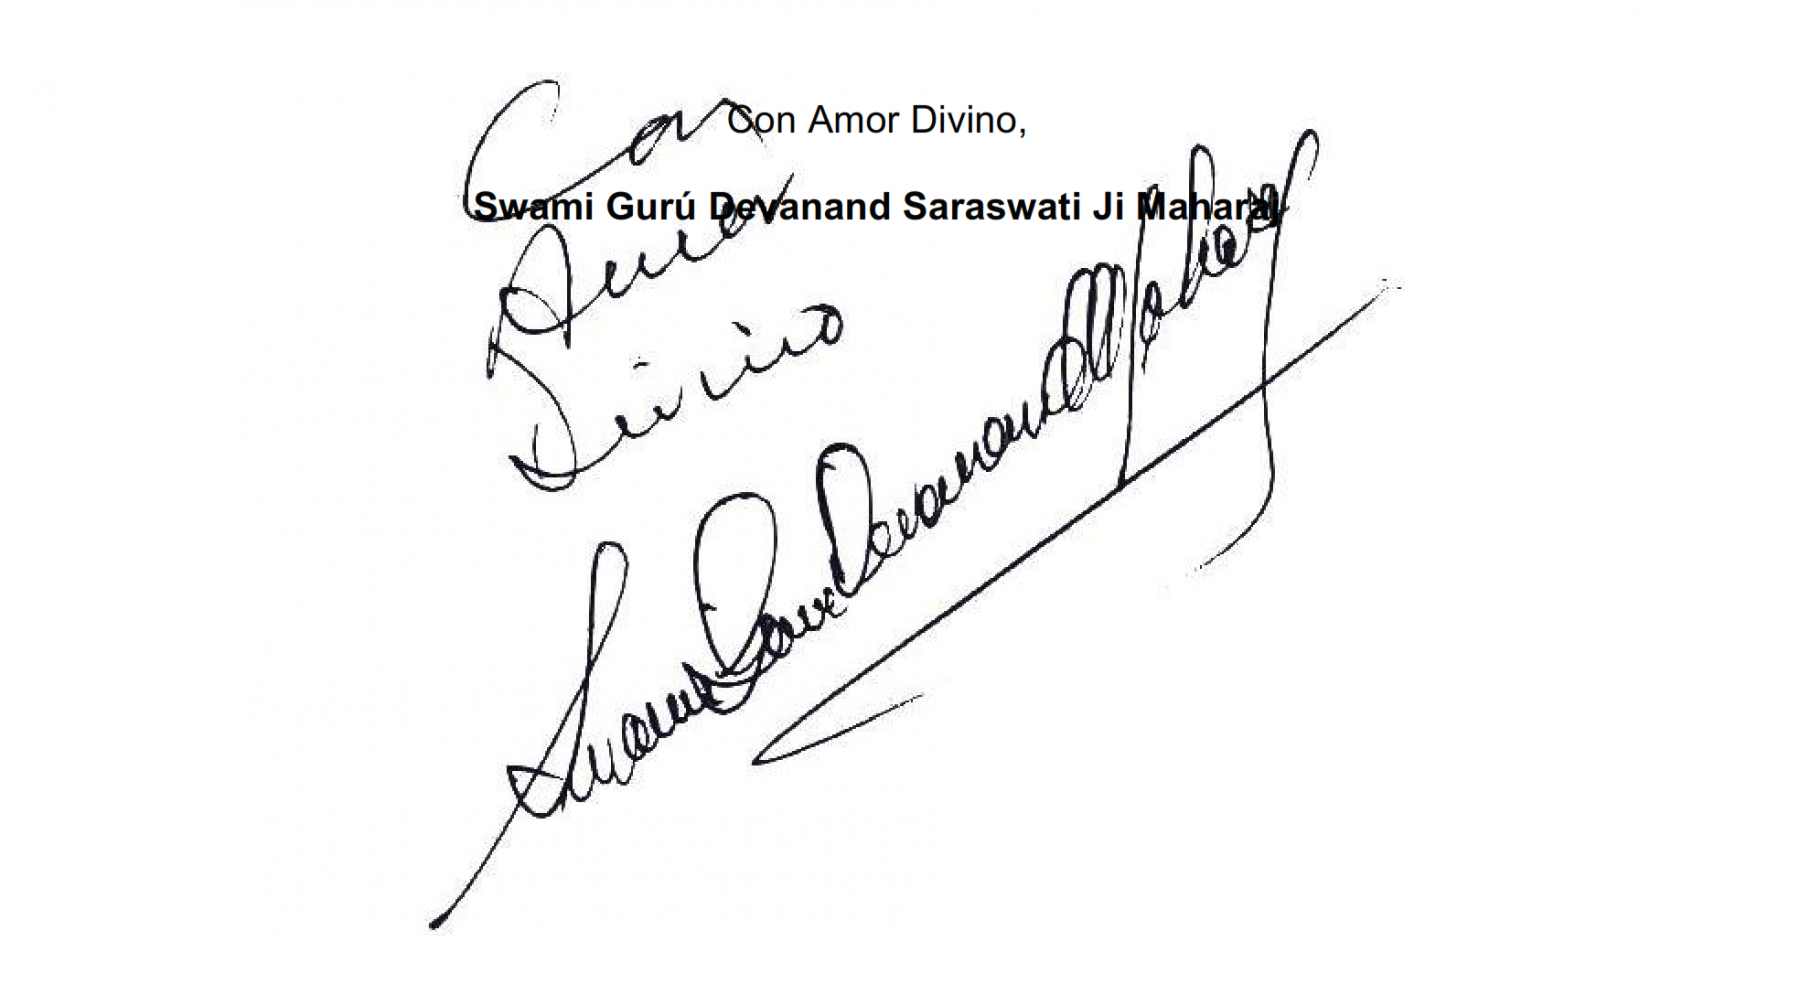 Con Amor Divino,
Swami Gurú Devanand Saraswati Ji Maharaj
Con
Amor
Divino
Swami Guru Devanand Maharaj